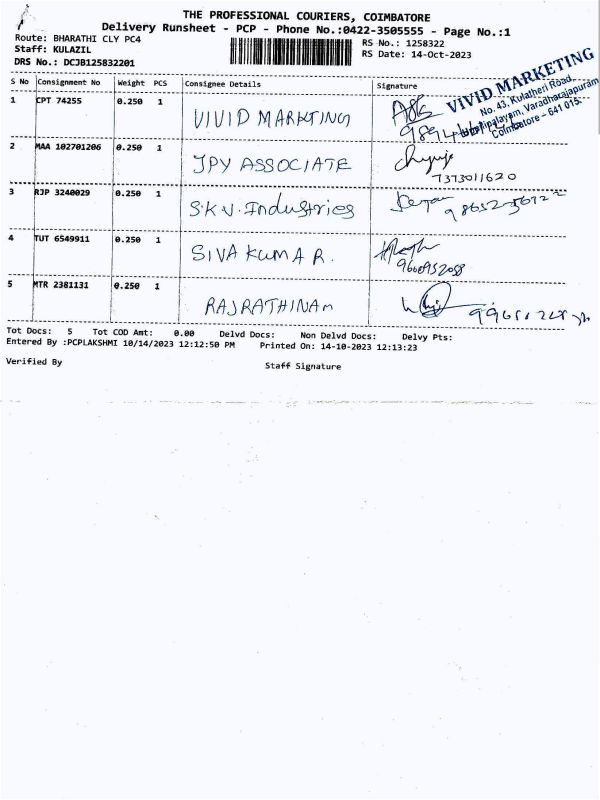 THE PROFESSIONAL COURIERS, COIMBATORE
Delivery Runsheet - PCP - Phone No.:0422-3505555 - Page No.:1
Route: BHARATHI CLY PC4
Staff: KULAZIL
DRS No.: DCJB125832201
RS No.: 1258322
RS Date: 14-Oct-2023
S No Consignment No Weight PCS Consignee Details Signature
1 CPT 74255 0.250 1 VIVID MARKTING
VIVID MARKETING
No. 43, Kulatheri Road,
Varadharajapuram
Coimbatore - 641 015.
2 MAA 102701206 0.250 1 JPY ASSOCIATE
7373011620
3 RJP 3240029 0.250 1 S.K.V. Industries
4 TUT 6549911 0.250 1 SIVA KUMAR.
9600952058
5 MTR 2381131 0.250 1 RAJRATHINAM
Tot Docs: 5 Tot COD Amt: 0.00 Delvd Docs: Non Delvd Docs: Delvy Pts:
Entered By :PCPLAKSHMI 10/14/2023 12:12:50 PM Printed On: 14-10-2023 12:13:23
Verified By Staff Signature